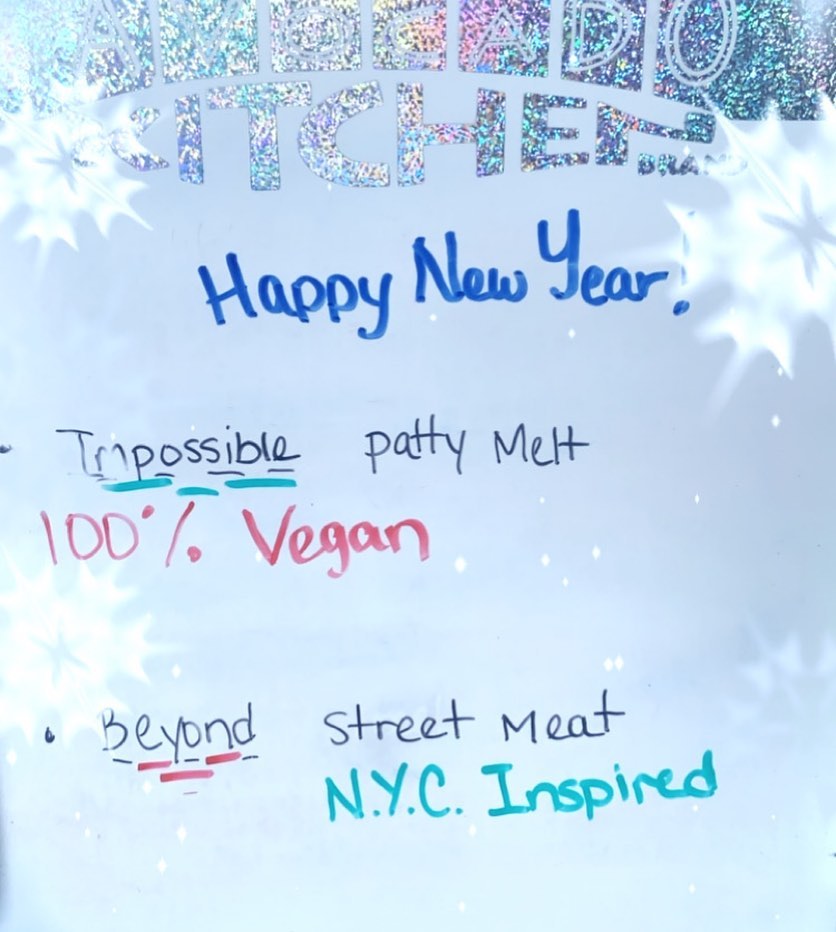 AVOCADO
KITCHEN
BRAND
Happy New Year!
• Impossible Patty Melt
100% Vegan
• Beyond Street Meat
N.Y.C. Inspired